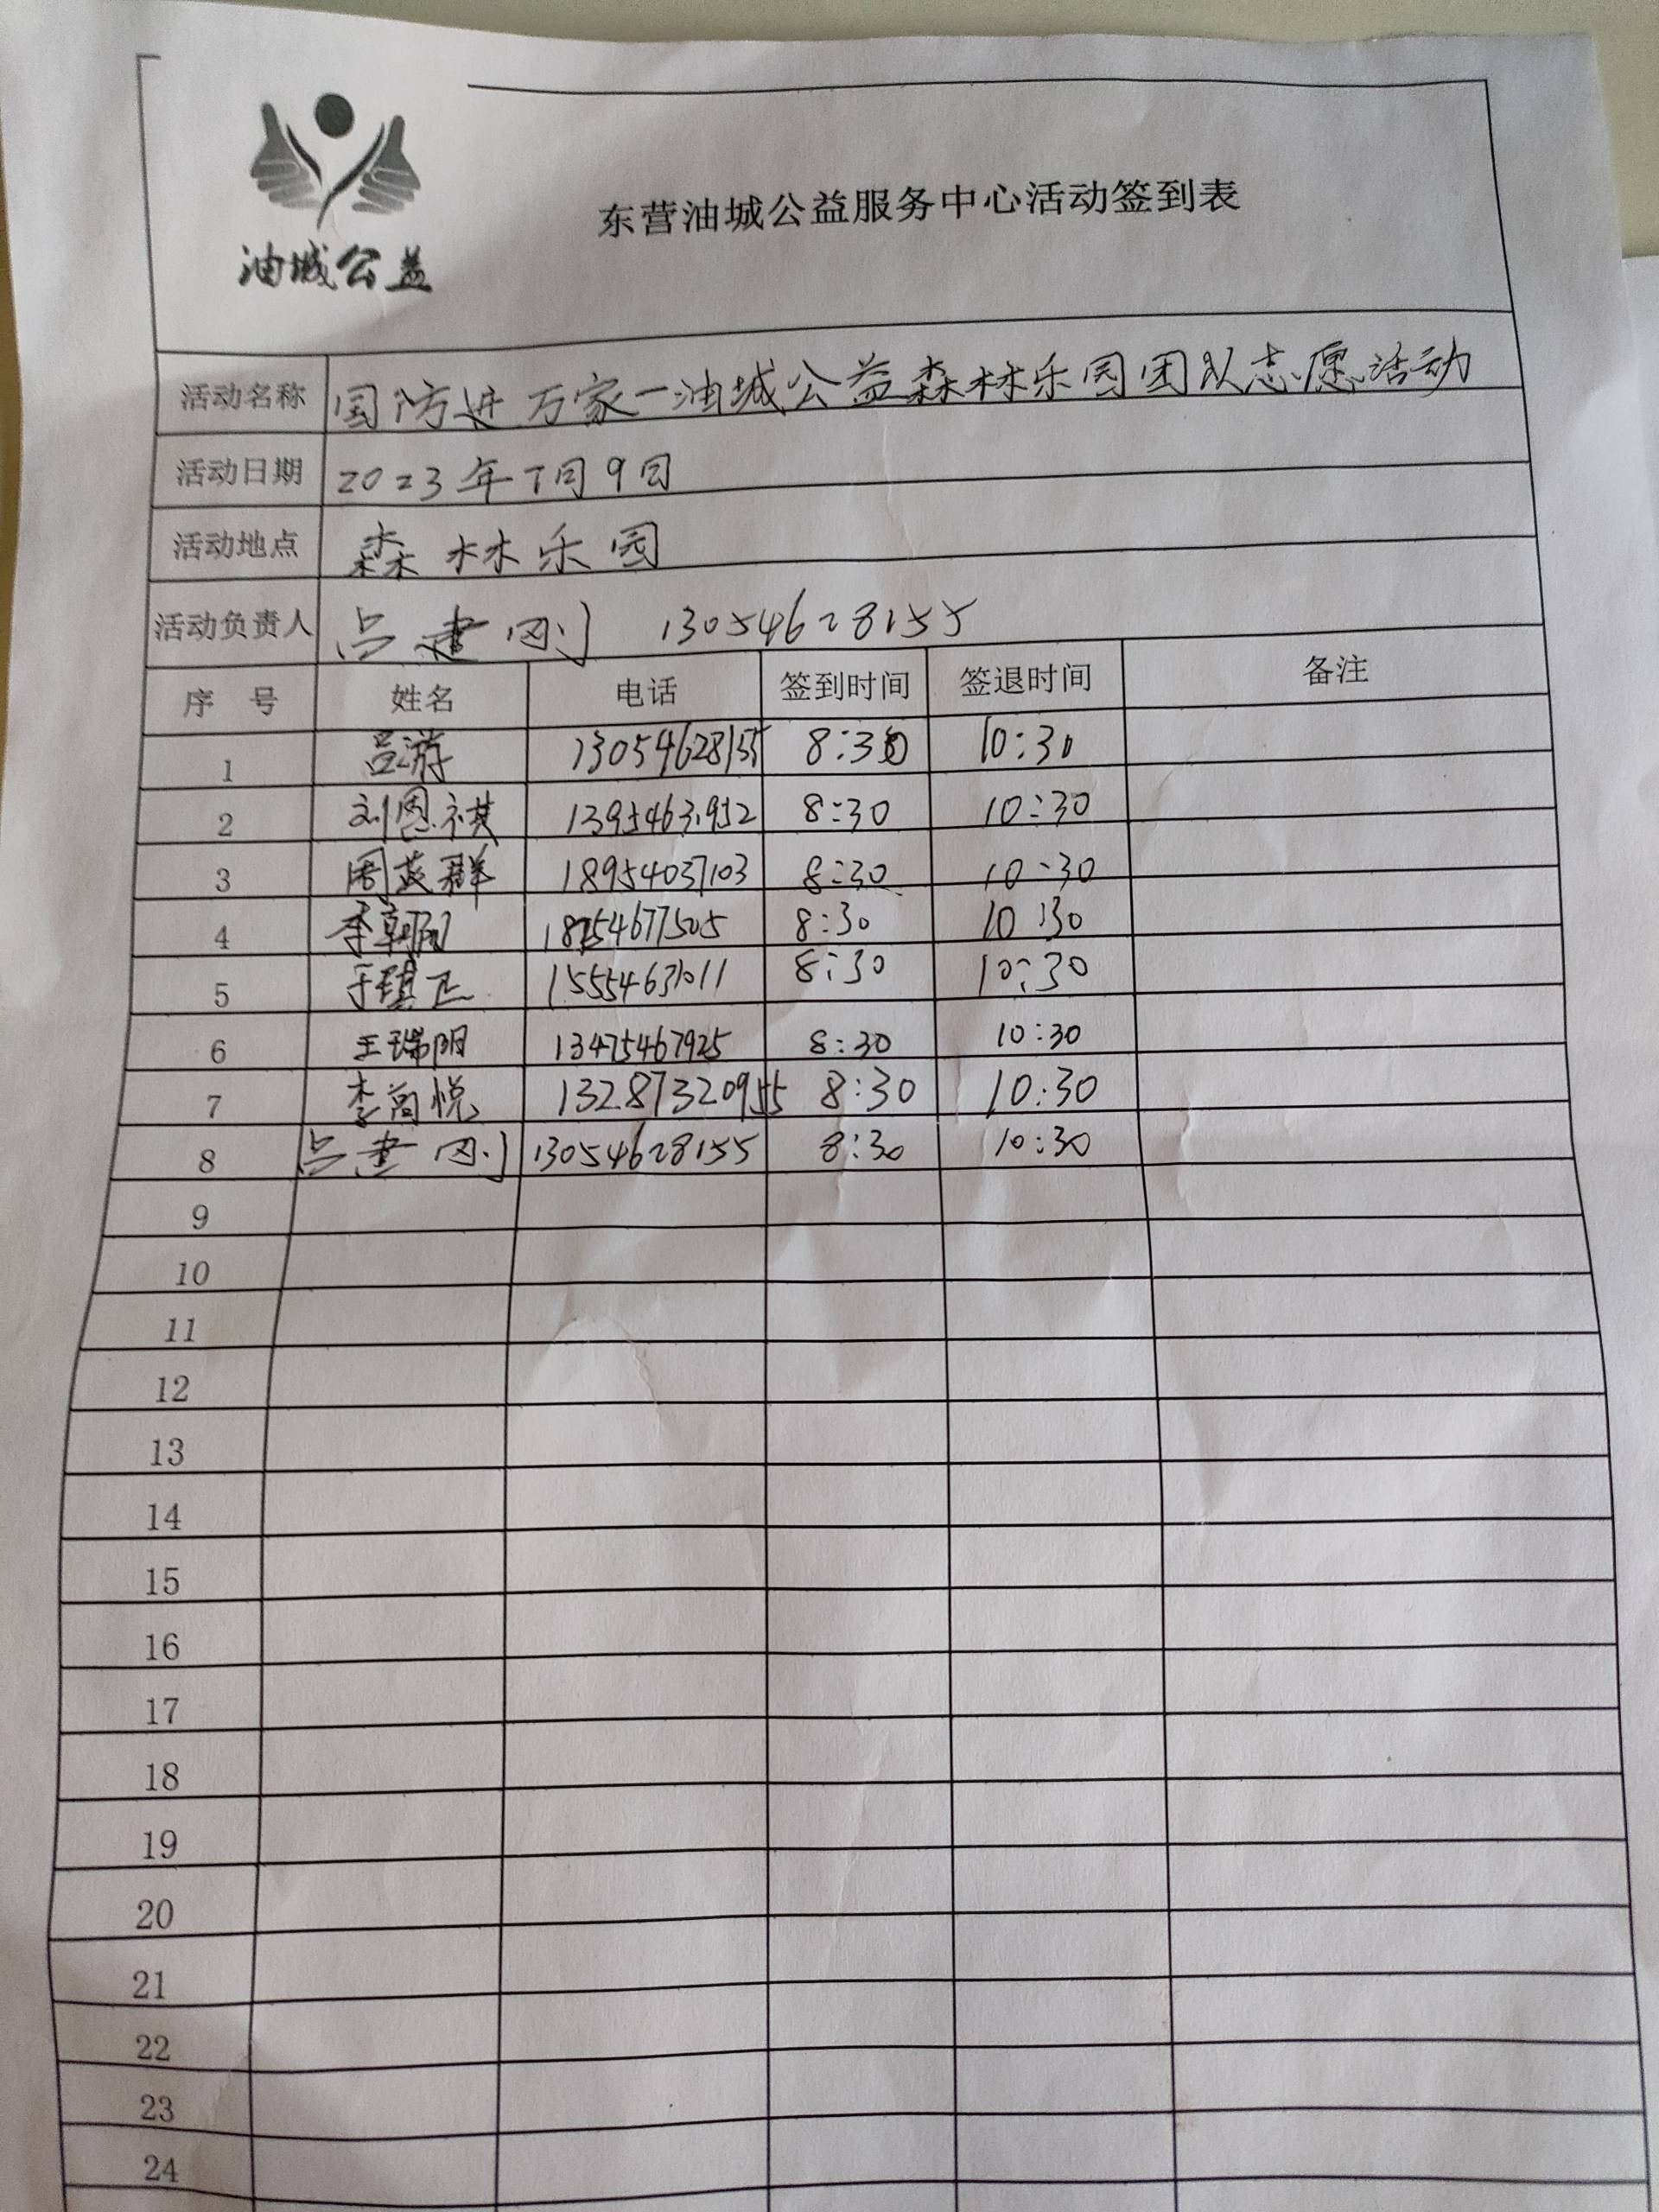 油城公益
东营油城公益服务中心活动签到表
活动名称 国防进万家一油城公益森林乐园团队志愿活动
活动日期 2023年7月9日
活动地点 森林乐园
活动负责人 吕建刚 13054628155
序 号 姓名 电话 签到时间 签退时间 备注
1 吕游 13054628155 8:30 10:30
2 刘恩祺 8:30 10:30
3 周益群 18954037103 8:30 10:30
4 8:30 10:30
5 于镇正 8:30 10:30
6 王瑞阳 13475467925 8:30 10:30
7 李尚悦 13287320955 8:30 10:30
8 吕建刚 13054628155 8:30 10:30
9
10
11
12
13
14
15
16
17
18
19
20
21
22
23
24